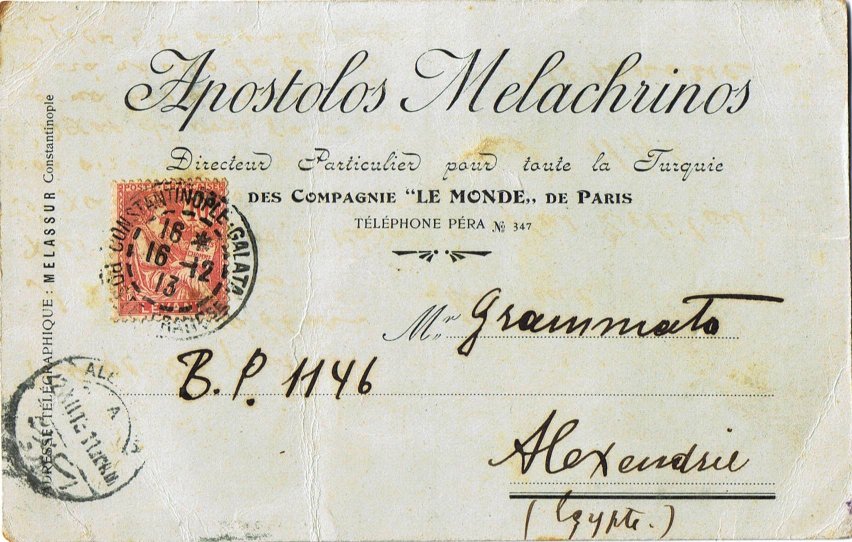 Apostolos Melachrinos
Directeur Particulier pour toute la Turquie
DES COMPAGNIE "LE MONDE„ DE PARIS
TÉLÉPHONE PÉRA № 347
ADRESSE TÉLÉGRAPHIQUE : MELASSUR Constantinople
CONSTANTINOPLE-GALATA
16 *
16 -12
13
Mr Grammato
B.P. 1146
Alexendrie
(Egypte.)
ALE